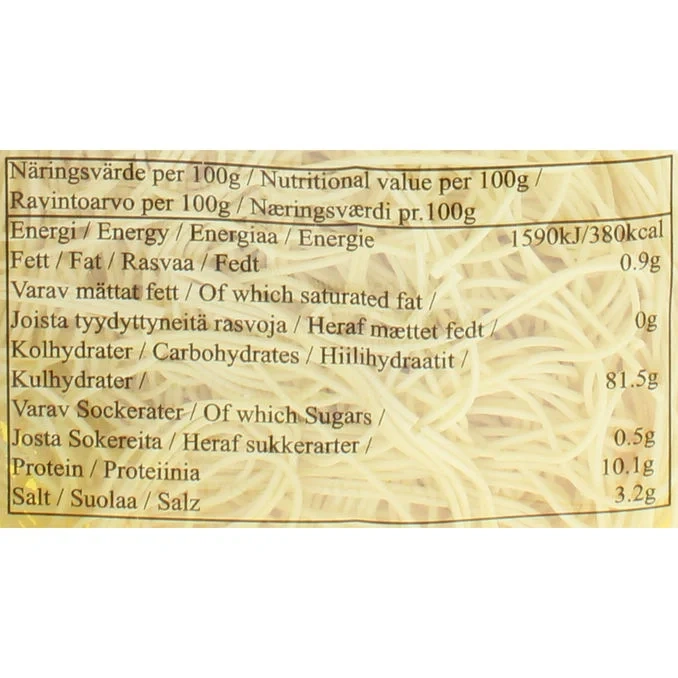 Näringsvärde per 100g / Nutritional value per 100g /
Ravintoarvo per 100g / Næringsværdi pr.100g
Energi / Energy / Energiaa / Energie 1590kJ/380kcal
Fett / Fat / Rasvaa / Fedt 0.9g
Varav mättat fett / Of which saturated fat /
Joista tyydyttyneitä rasvoja / Heraf mættet fedt / 0g
Kolhydrater / Carbohydrates / Hiilihydraatit /
Kulhydrater / 81.5g
Varav Sockerater / Of which Sugars /
Josta Sokereita / Heraf sukkerarter / 0.5g
Protein / Proteiinia 10.1g
Salt / Suolaa / Salz 3.2g